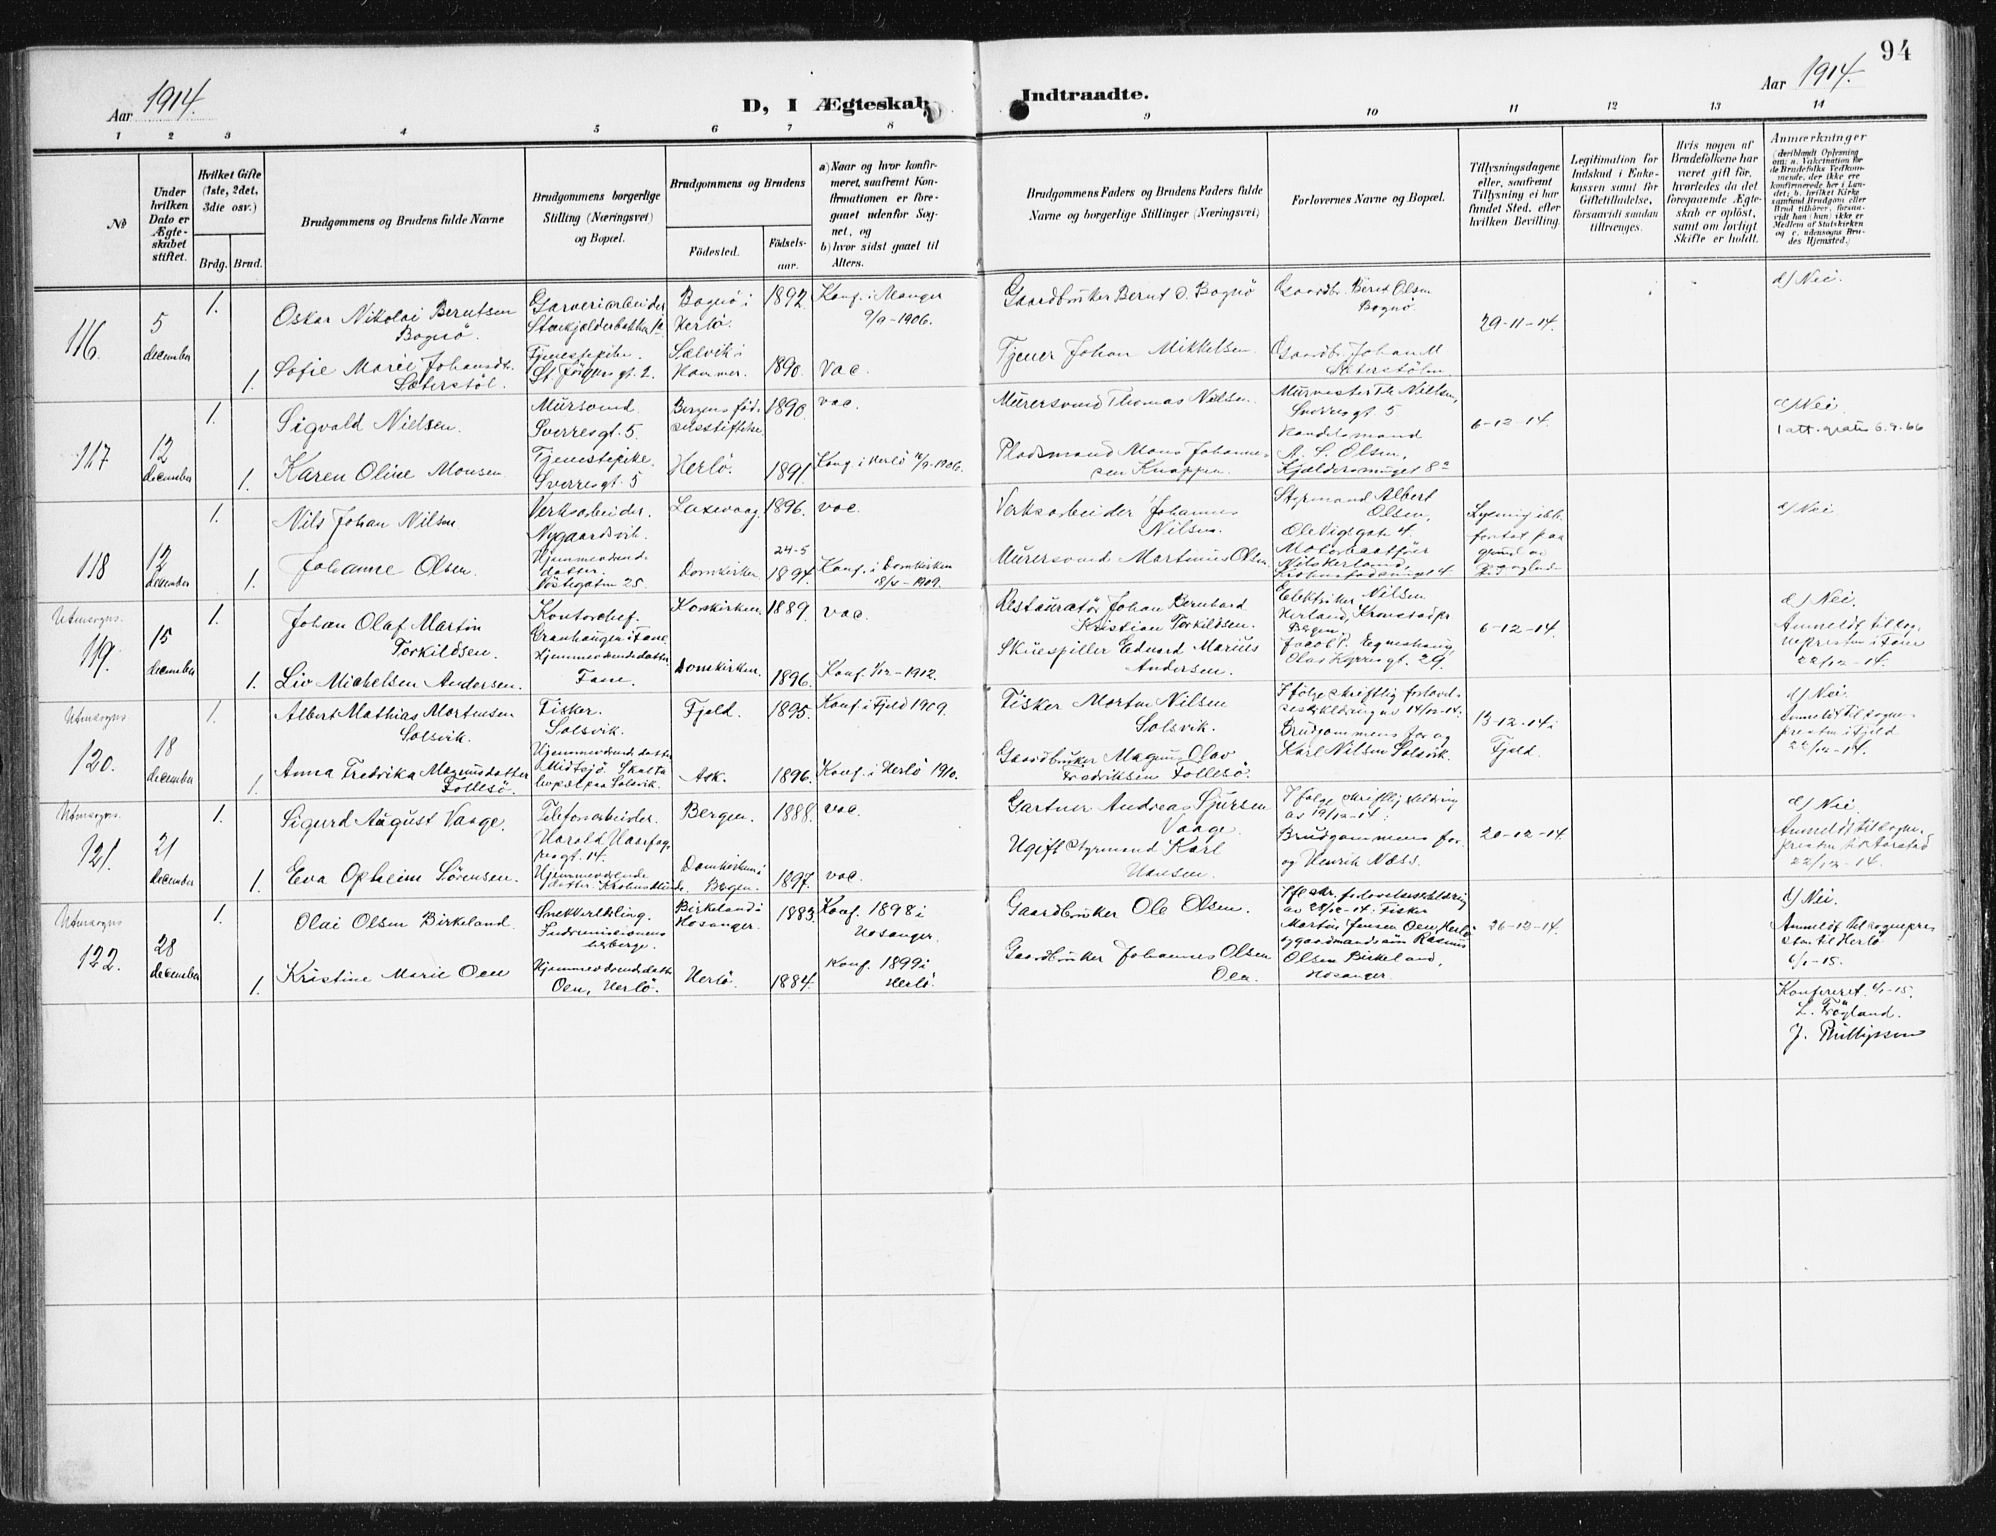 94
Aar 1914.
D, I Ægteskab
Indtraadte.
Aar 1914.
1 2 3 4 5 6 7 8 9 10 11 12 13 14
No
Under
hvilken
Dato er
Ægte-
skabet
stiftet.
Hvilket Gifte
(1ste, 2det,
3die osv.)
Brdg. Brud.
Brudgommens og Brudens fulde Navne
Brudgommens borgerlige
Stilling (Næringsvei)
og Bopæl.
Brudgommens og Brudens
Fødested.
Fødsels-
aar.
a) Naar og hvor konfir-
meret, saafremt Kon-
firmationen er fore-
gaaet udenfor Sog-
net, og
b) hvor sidst gaaet til
Alters.
Brudgommens Faders og Brudens Faders fulde
Navne og borgerlige Stillinger (Næringsvei)
Forlovernes Navne og Bopæl.
Tillysningsdagene
eller, saafremt
Tillysning ei har
fundet Sted, efter
hvilken Bevilling.
Legitimation for
Indskud i Enke-
kassen samt for
Giftetilladelse,
forsaavidt saadan
tiltrænges.
Hvis nogen af
Brudefolkene har
været gift før,
hvorledes da det
foregaaende Ægte-
skab er opløst,
samt om lovligt
Skifte er holdt.
Anmærkninger
(deriblandt Oplysning
om: a. Vakcination for
de Brudefolks Vedkom-
mende, der ikke ere
konfirmerede her i Lan-
det; b. hvilket Kirke-
samfund Brudgom eller
Brud tilhører, forsaa-
vidt han (hun) ikke er
Medlem af Statskirken
og c. udensogns Bru-
des Hjemsted.)
116.
5
december
1.
Oskar Nikolai Berntsen
Bognø
Garveriarbeider
Bognø i
Herlö.
1892
Konf. i Manger
9/9-1906.
Gaardbruker Bernt O. Bognø
Gaardbr. Bernt Olsen
Bognø.
29-11-14.
d) Nei.
1.
Sofie Marie Johansdtr.
Sæterstøl.
Tjenestepike.
St. Jörgensgt. 2.
Sælvik i
Hammer.
1890.
vac.
Tjener Johan Mikkelsen.
Gaardbr. Johan M
Sæterstølen
117
12
december
1.
Sigvald Nielsen.
Mursvend
Sverresgt. 5.
Bergens föd-
selsstiftelse.
1890.
vac.
Murersvend Thomas Nielsen.
Murmester Th Nielsen,
Sverresgt 5
6-12-14.
d) Nei.
1 att. gratis 6.9.66
1.
Karen Oline Monsen.
Tjenestepike.
Sverresgt. 5
Herlö.
1891.
Konf. i Herlö 16/9-1906.
Pladsmand Mons Johanne-
sen Knappen.
Handelsmand
A. S. Olsen,
Kjeldersmuget 8a
118
12
december
1.
Nils Johan Nilsen
Verksarbeider.
Nygaardsvik.
Laxevaag.
1896.
vac.
Verksarbeider Johannes
Nilsen.
Styrmand Albert
Olsen,
Ole Vigsgate 4.
Lysning ikke
fortat paa
grund av
d) Nei
1.
Johanne Olsen.
Hjemmevrend.
datter.
Vestregaten 25.
Domkirken.
24-5
1894.
Konf. i Domkirken
18/4-1909.
Murersvend Martinus Olsen
Motorbaatförer
Nils Herland,
Utensogns.
119.
15
december
1.
Johan Olaf Martin
Torkildsen.
Kontorchef.
Granhaugen i Fane.
Korskirken.
1889.
vac.
Restauratör Johan Bernhard
Kristian Torkildsen.
Elektriker Nilsen
Herland, Kronstadpr
Bergen,
6-12-14.
d) Nei.
Anmeldt til sog-
nepresten i Fane
22/12-14.
1.
Liv Michelsen Andersen.
Hjemmevrendedatter
Fane.
Domkirken.
1896.
Konf. 1/12-1912.
Skuespiller Edvard Marius
Andersen.
Jacob T. Egneshaug,
Olav Kyrresgt. 29.
Utensogns
120.
18
december
1.
Albert Mathias Mortensen
Solsvik.
Fisker.
Solsvik.
Fjeld.
1895.
Konf. i Fjeld 1909.
Fisker Morten Nilsen
Solsvik.
I følge skriftlig forlovel-
seserklæring av 14/12-14:
Brudgommens far og
Karl Nilsen Solsvik.
13-12-14 i
Fjeld.
d) Nei.
Anmeldt til sogne-
presten i Fjeld
22/12-14.
1.
Anna Fredrika Magnusdatter
Follesø.
Hjemmevrende datter
Midtsjö. Skal ta
bopæl paa Solsvik.
Ask.
1896.
Konf. i Herlö 1910.
Gaardbruker Magnus Olav
Fredriksen Follesø.
Utensogns.
121.
21
december
1.
Sigurd August Vaage.
Telefonarbeider.
Harald Haarfag-
resgt. 14.
Bergen.
1888.
vac.
Gartner Andreas Sjursen
Vaage.
I følge skriftlig erklæring
av 19/12-14:
Brudgommens far
og Henrik Næss.
20-12-14
d) Nei
Anmeldt til sogne-
presten til Aarstad
22/12-14.
1.
Eva Opheim Sörensen.
Hjemmevrende
datter.
Domkirken i
Bergen.
1897.
vac.
Ugift styrmand Karl
Hansen.
Utensogns
122.
28
december
1.
Olai Olsen Birkeland.
Snekkerlærling.
Indremissionens
herberge.
Birkeland i
Hosanger.
1883.
Konf. 1898 i
Hosanger.
Gaardbruker Ole Olsen.
Ifl skr. forlovelseserklæring
av 28/12-14: Fisker
Martin Jensen Oen, Herlö
og gaardmandssön Rasmus
Olsen Birkeland,
Hosanger.
26-12-14.
d) Nei.
Anmeldt til sognepres
sten til Herlø
6/1-15.
1.
Kristine Marie Oen
Hjemmevrendedatter
Oen, Herlö.
Herlö.
1884.
Konf. 1899 i
Herlö.
Gaardbruker Johannes Olsen
Oen.
Konfereret 4/1-15.
L. Fögland.
J. Phillipsen